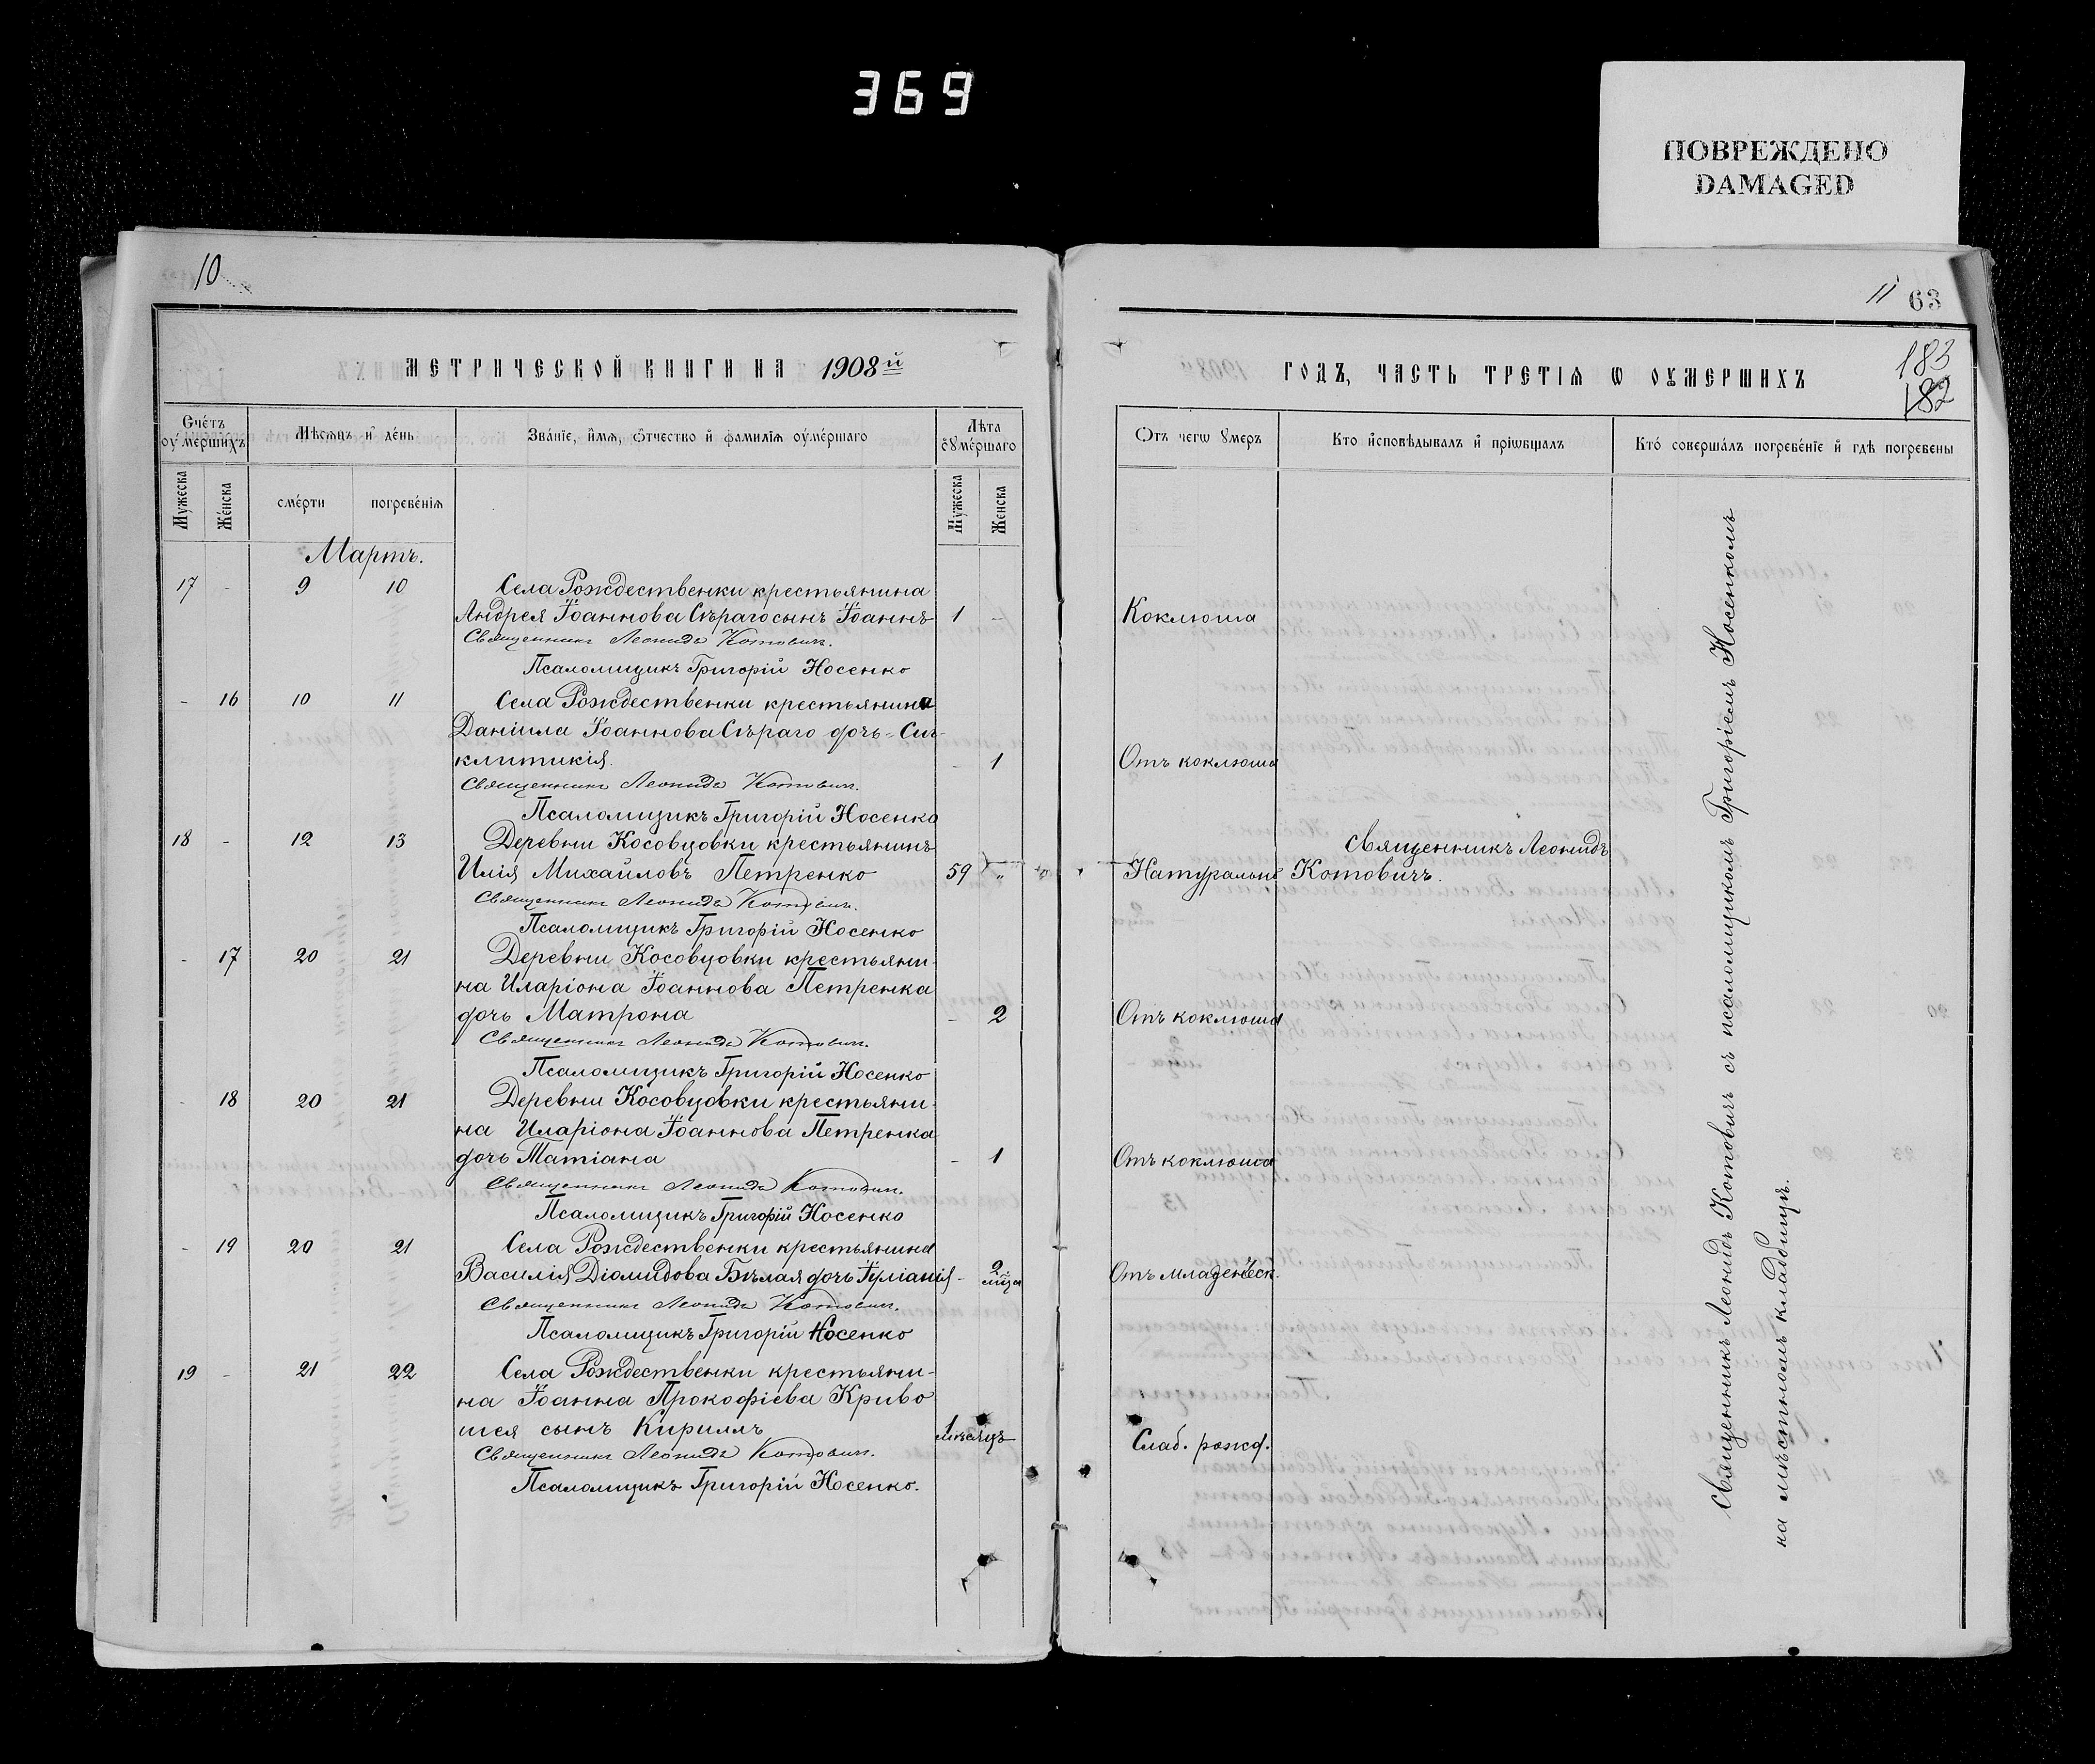 369
ПОВРЕЖДЕНО
DAMAGED
10
МЕТРИЧЕСКОЙ КНИГИ НА 1908й
Счéтъ оумéршихъ
Мѣсяцъ и дéнь
Звáнїе, и́мя, о́тчество и фамилїя оумéршаго
Лѣта оумéршаго
Мужеска
Жéнска
смéрти
погребéнїя
Мужеска
Женска
Мартъ.
17 - 9 10 Села Рождественки крестьянина
Андрея Іоаннова Сѣраго сынъ Іоаннъ 1 -
Священникъ Леонидъ Котовичъ.
Псаломщикъ Григорій Носенко
- 16 10 11 Села Рождественки крестьянина
Даніила Іоаннова Сѣраго дочь Син-
клитикія. - 1
Священникъ Леонидъ Котовичъ.
Псаломщикъ Григорій Носенко
18 - 12 13 Деревни Косовцовки крестьянинъ
Илія Михайловъ Петренко 59 "
Священникъ Леонидъ Котовичъ.
Псаломщикъ Григорій Носенко
- 17 20 21 Деревни Косовцовки крестьяни-
на Иларіона Іоаннова Петренка
дочь Матрона - 2
Священникъ Леонидъ Котовичъ.
Псаломщикъ Григорій Носенко
- 18 20 21 Деревни Косовцовки крестьяни-
на Иларіона Іоаннова Петренка
дочь Татіана - 1
Священникъ Леонидъ Котовичъ.
Псаломщикъ Григорій Носенко
- 19 20 21 Села Рождественки крестьянина
Василія Діомидова Бѣлая дочь Іуліанія - 2 мѣца
Священникъ Леонидъ Котовичъ.
Псаломщикъ Григорій Носенко
19 - 21 22 Села Рождественки крестьяни-
на Іоанна Прокофіева Криво
шея сынъ Кириллъ 1 мѣсяцъ
Священникъ Леонидъ Котовичъ.
Псаломщикъ Григорій Носенко.
11 63
183
182
ГОДЪ, ЧАСТЬ ТРЕТІЯ Ѡ ОУМЕРШИХЪ
Отъ чегѡ умеръ
Кто исповѣдывалъ и прїѡбщалъ
Ктó совершáлъ погребéнїе и гдѣ погребены
Коклюша
Отъ коклюша
Священникъ Леонидъ
Натурально Котовичъ.
Отъ коклюша
Отъ коклюша
Отъ младенческ.
Слаб. рожд.
Священникъ Леонидъ Котовичъ съ псаломщикомъ Григоріемъ Носенкомъ
на мѣстномъ кладбищѣ.